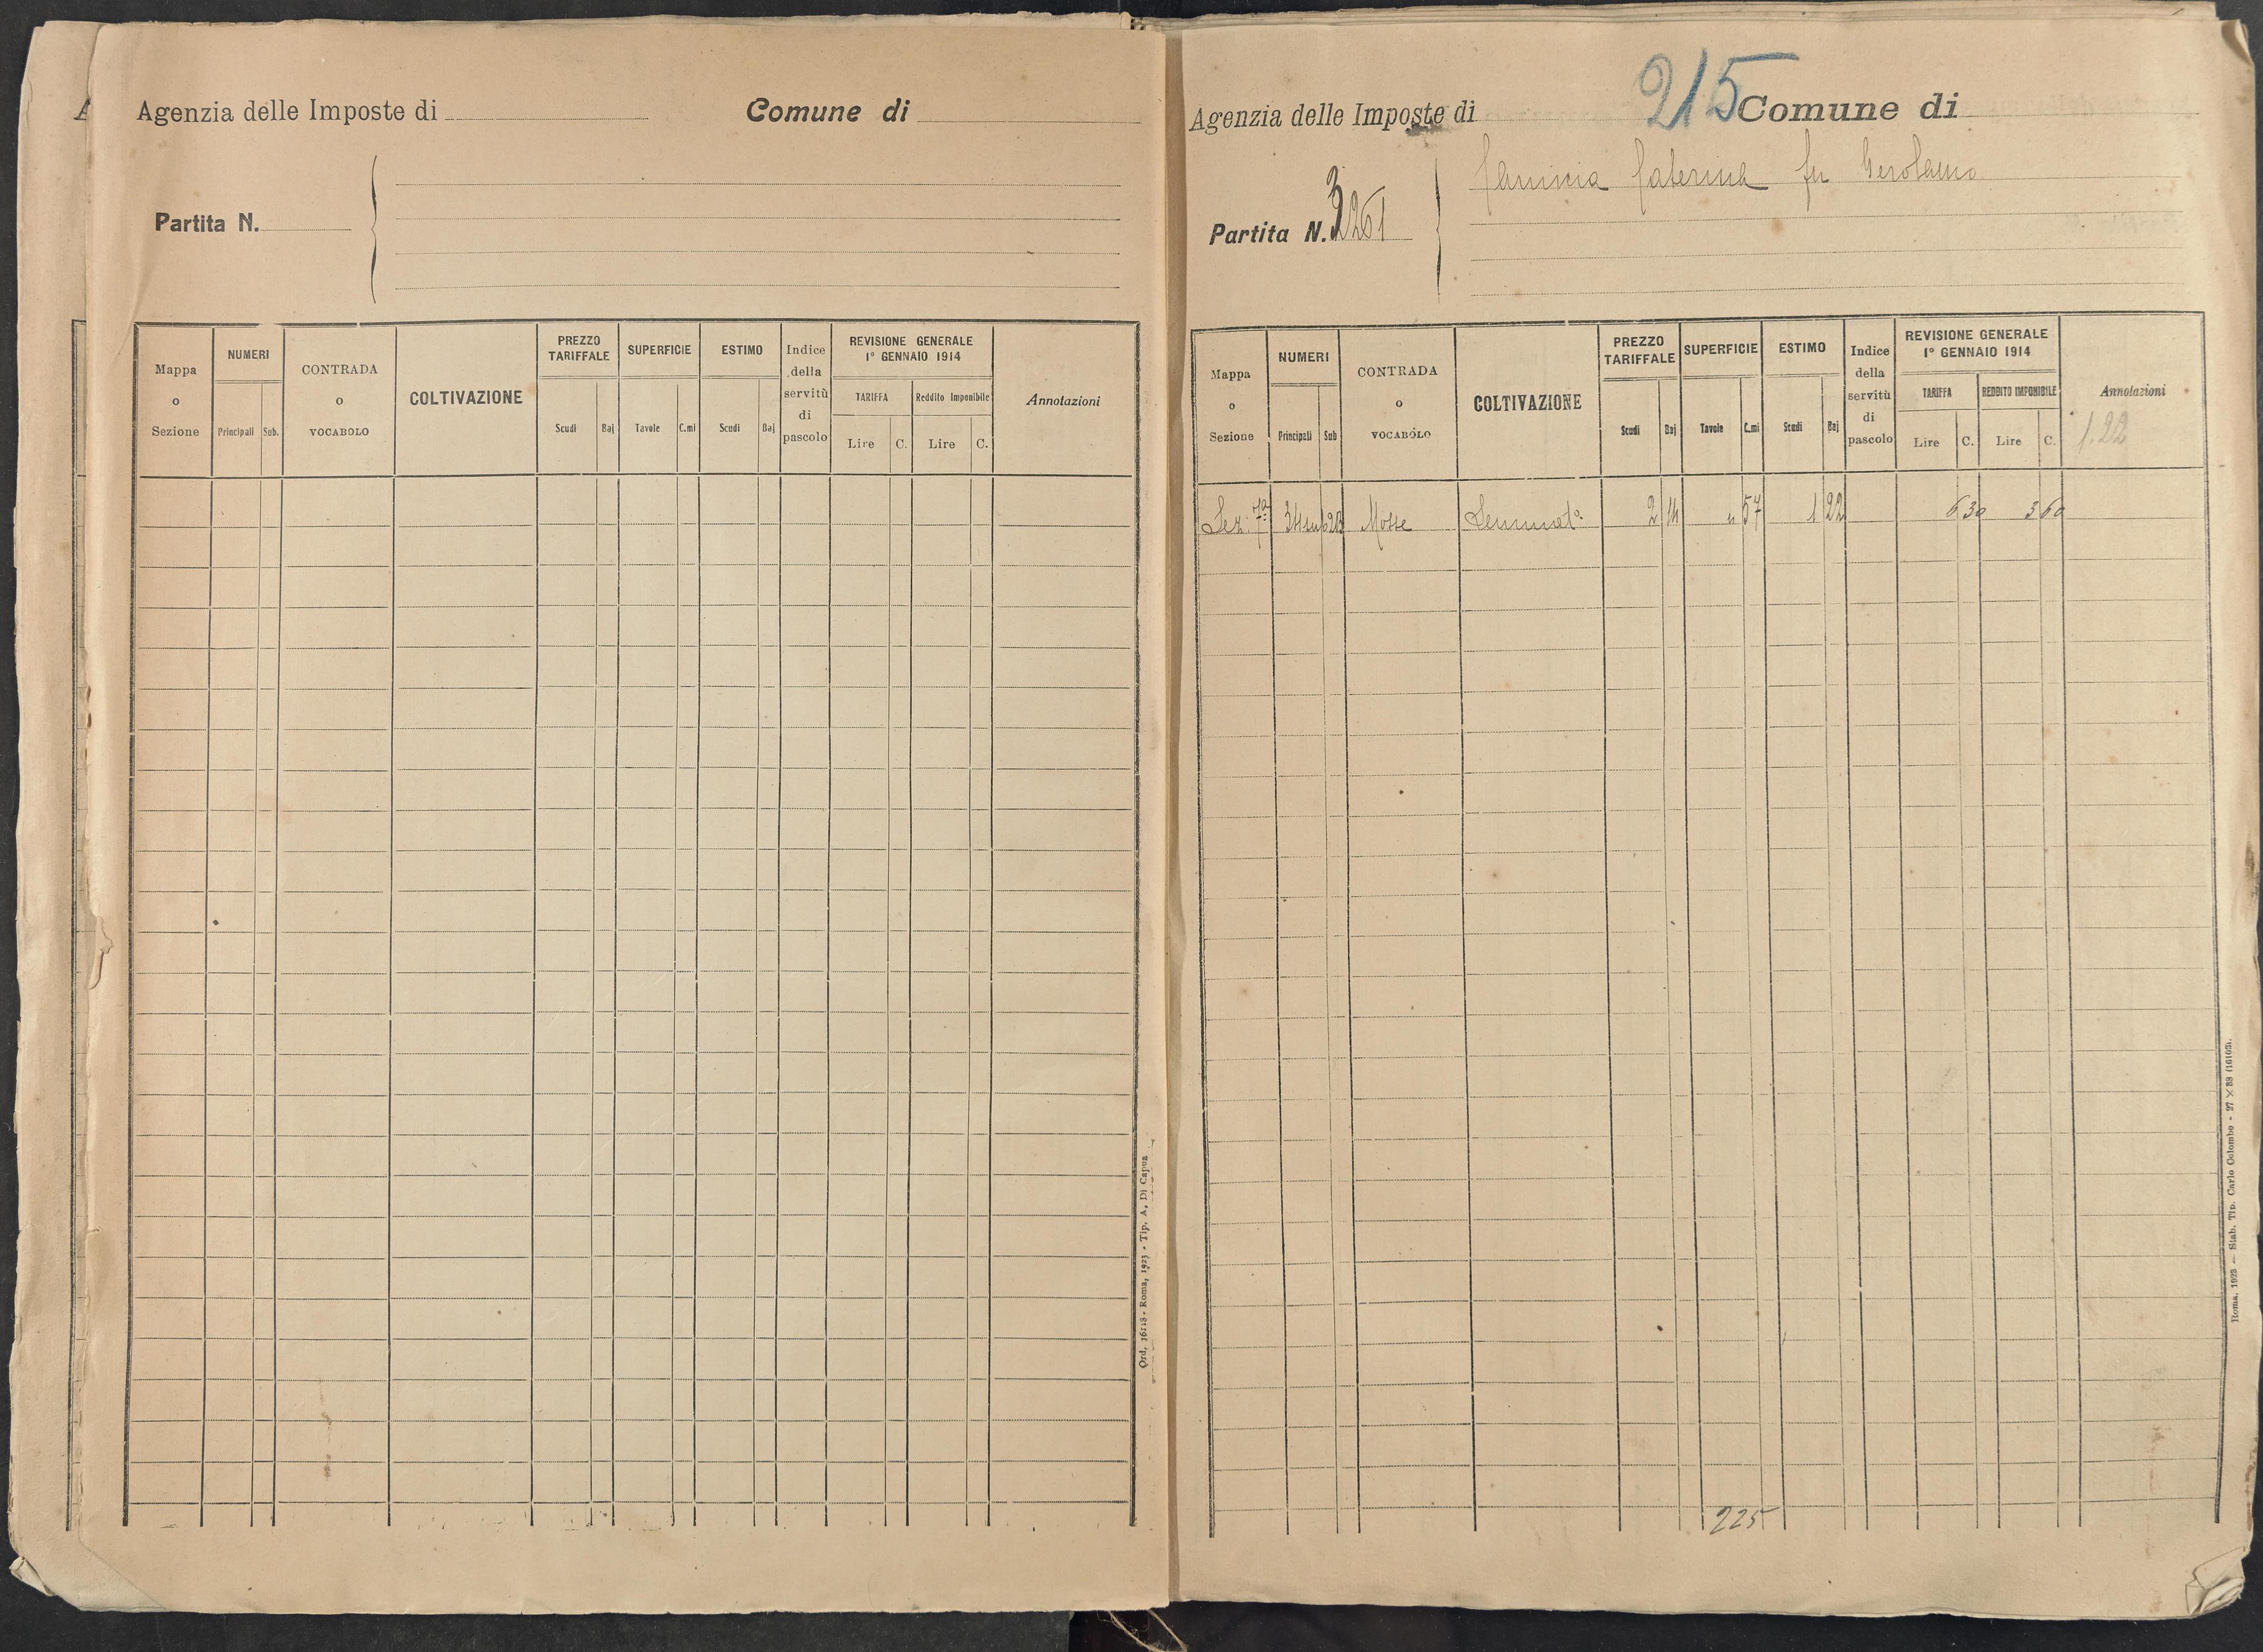 Agenzia delle Imposte di
Comune di
Partita N.
Mappa o Sezione
NUMERI
Principali
Sub.
CONTRADA o VOCABOLO
COLTIVAZIONE
PREZZO TARIFFALE
Scudi
Baj
SUPERFICIE
Tavole
C.mi
ESTIMO
Scudi
Baj
Indice della servitù di pascolo
REVISIONE GENERALE
1° GENNAIO 1914
TARIFFA
Reddito Imponibile
Lire
C.
Lire
C.
Annotazioni
Ord. 16118 - Roma, 1923 - Tip. A. Di Capua
215
Agenzia delle Imposte di
Comune di
Caterina fu Gerolamo
Partita N. 3261
Mappa o Sezione
NUMERI
Principali
Sub
CONTRADA o VOCABOLO
COLTIVAZIONE
PREZZO TARIFFALE
Scudi
Baj
SUPERFICIE
Tavole
C.mi
ESTIMO
Scudi
Baj
Indice della servitù di pascolo
REVISIONE GENERALE
1° GENNAIO 1914
TARIFFA
REDDITO IMPONIBILE
Lire
C.
Lire
C.
Annotazioni
1.22
Sez. 7ª Mosse Seminatº 2 14 " 57 1 22 6 30 3 60
225
Roma, 1923 — Stab. Tip. Carlo Colombo - 27 × 88 (16103).